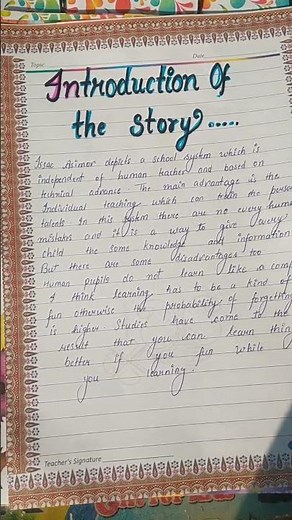 Topic
Date
Introduction Of
the story.....
Isac Asimov depicts a school system which is
independent of human teachers and based on
technical advance. The main advantage is the
Individual teaching which can train the person
talents In this system there are no every human
mistakes and it is a way to give every
child the some knowledge and information
But there are some disadvantages too
Human pupils do not learn like a comp
I think learning has to be a kind of
fun otherwise the probability of forgetting
is higher Studies have come to the
result that you can learn thin
better if you fun while
you learning.
Teacher's Signature